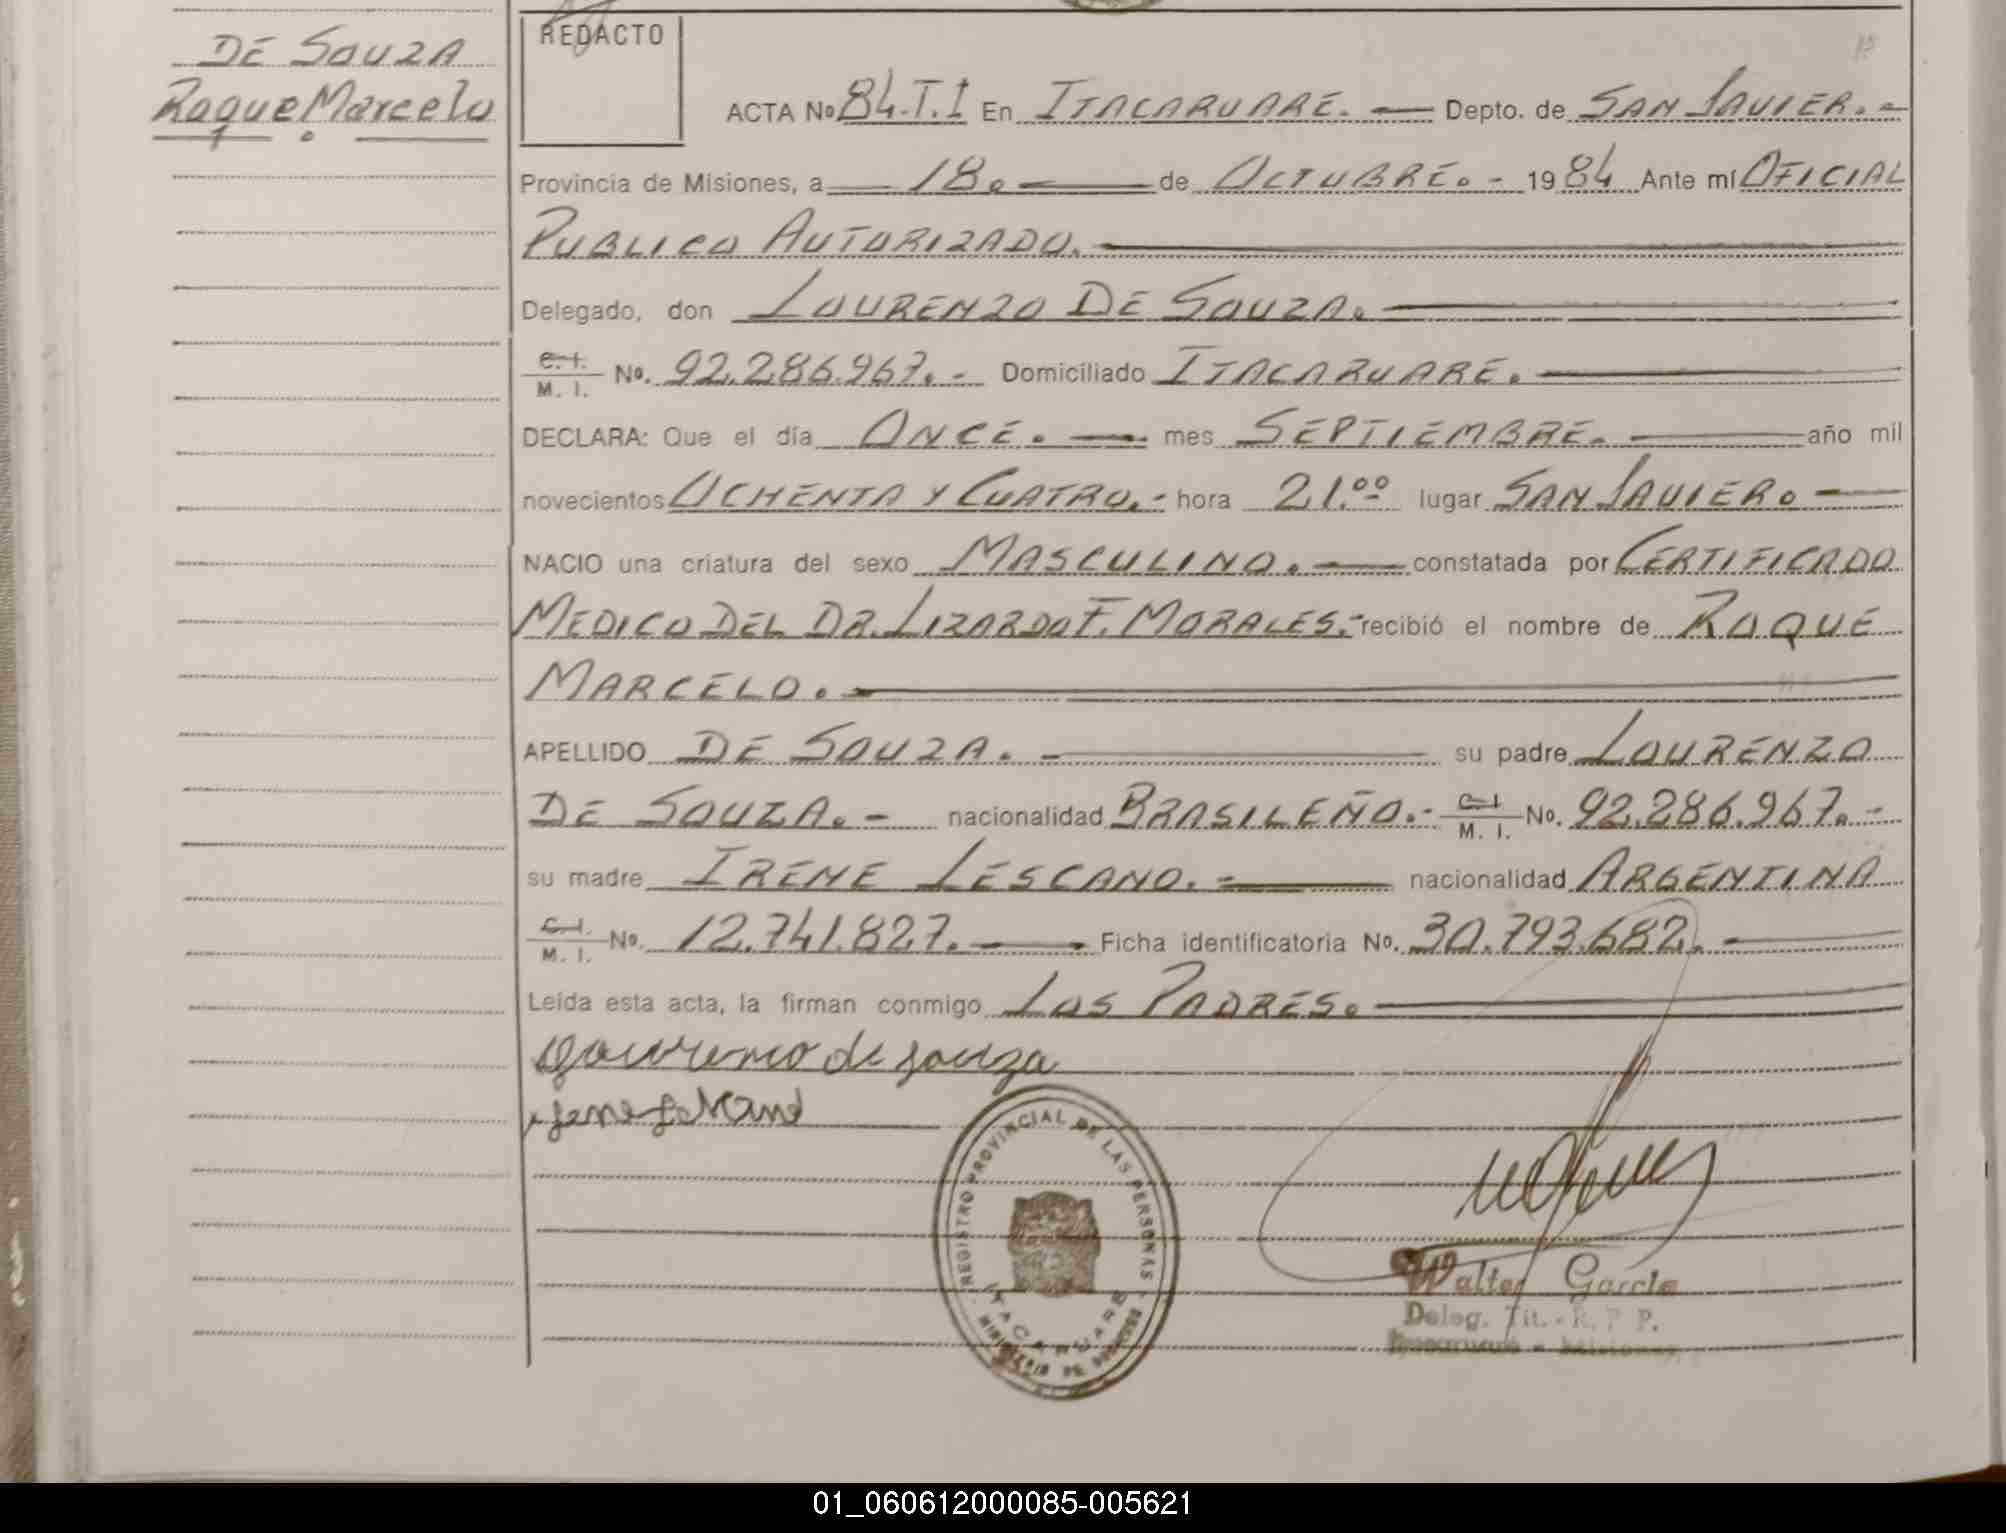 DE SOUZA
Roque Marcelo
REDACTO
ACTA No 84-T.I En ITACARUARE. — Depto. de SAN JAVIER. -
Provincia de Misiones, a 18. — de OCTUBRE. - 1984 Ante mí OFICIAL
PUBLICO AUTORIZADO.
Delegado, don LOURENZO DE SOUZA.
C. I. M. I. No. 92.286.967. - Domiciliado ITACARUARE.
DECLARA: Que el día ONCE. — mes SEPTIEMBRE. — año mil
novecientos OCHENTA Y CUATRO. - hora 21.00 lugar SAN JAVIER. —
NACIO una criatura del sexo MASCULINO. — constatada por CERTIFICADO
MEDICO DEL DR. LIZARDO F. MORALES. - recibió el nombre de ROQUE
MARCELO.
APELLIDO DE SOUZA. — su padre LOURENZO
DE SOUZA. - nacionalidad BRASILEÑO. - C. I. M. I. No. 92.286.967. -
su madre IRENE LESCANO. — nacionalidad ARGENTINA
C. I. M. I. No. 12.741.827. — Ficha identificatoria No. 30.793.682. —
Leída esta acta, la firman conmigo LOS PADRES.
de souza
REGISTRO PROVINCIAL DE LAS PERSONAS
ITACARUARE
MINISTERIO DE
Walter García
Deleg. Tit. - R. P. P.
Itacaruaré - Misiones
01_060612000085-005621